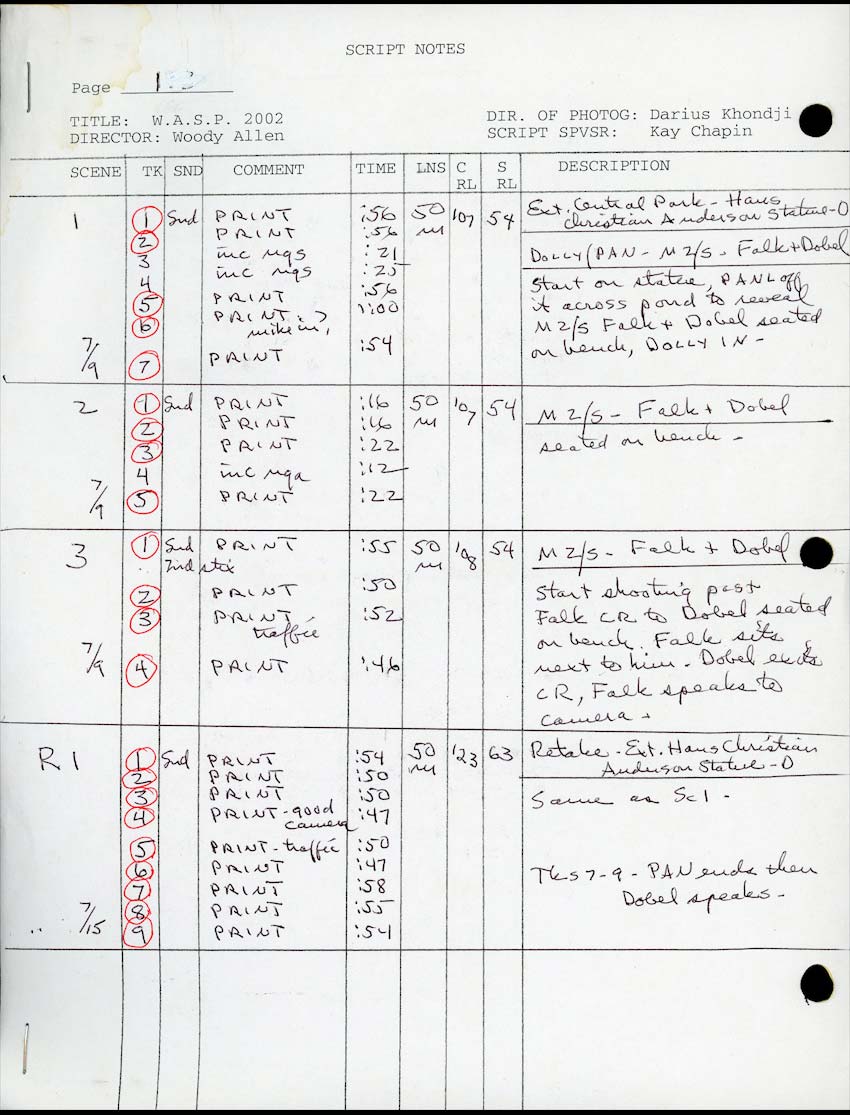 SCRIPT NOTES
Page
TITLE: W.A.S.P. 2002
DIR. OF PHOTOG: Darius Khondji
DIRECTOR: Woody Allen
SCRIPT SPVSR: Kay Chapin
SCENE TK SND COMMENT TIME LNS C RL S RL DESCRIPTION
1 1 Snd PRINT :56 50 m 107 54 Ext. Central Park - Hans
Christian Anderson Statue-D
2 PRINT :56
3 inc ngs :21 DOLLY/PAN - M2/S - Falk + Dobel
4 inc ngs :25 Start on statue, PAN L off
5 PRINT :56 it across pond to reveal
6 PRINT :> 1:00 M2/S Falk + Dobel seated
mike in, on bench, DOLLY IN -
7/9 7 PRINT :54
2 1 Snd PRINT :16 50 m 107 54 M2/S - Falk + Dobel
2 PRINT :16 seated on bench -
3 PRINT :22
4 inc nga :12
7/9 5 PRINT :22
3 1 Snd PRINT :55 50 m 108 54 M2/S - Falk + Dobel
2nd stix
2 PRINT :50 Start shooting past
3 PRINT :52 Falk CR to Dobel seated
traffic on bench. Falk sits
7/9 4 PRINT :46 next to him - Dobel exits
CR, Falk speaks to
camera +
R1 1 Snd PRINT :54 50 m 123 63 Retake - Ext. Hans Christian
2 PRINT :50 Anderson Statue - D
3 PRINT :50 Same as Sc 1 -
4 PRINT - good :47
camera
5 PRINT - traffic :50
6 PRINT :47 Tks 7-9 - PAN ends then
7 PRINT :58 Dobel speaks -
7/15 8 PRINT :55
9 PRINT :54